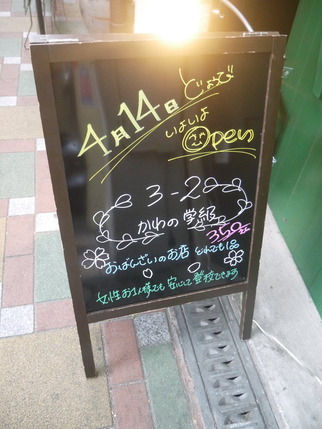 4月14日
いよいよ
Open
3-2
かわの学級
350円
おばんざいのお店 どれでも1品
女性お1人様でも安心して登校できます